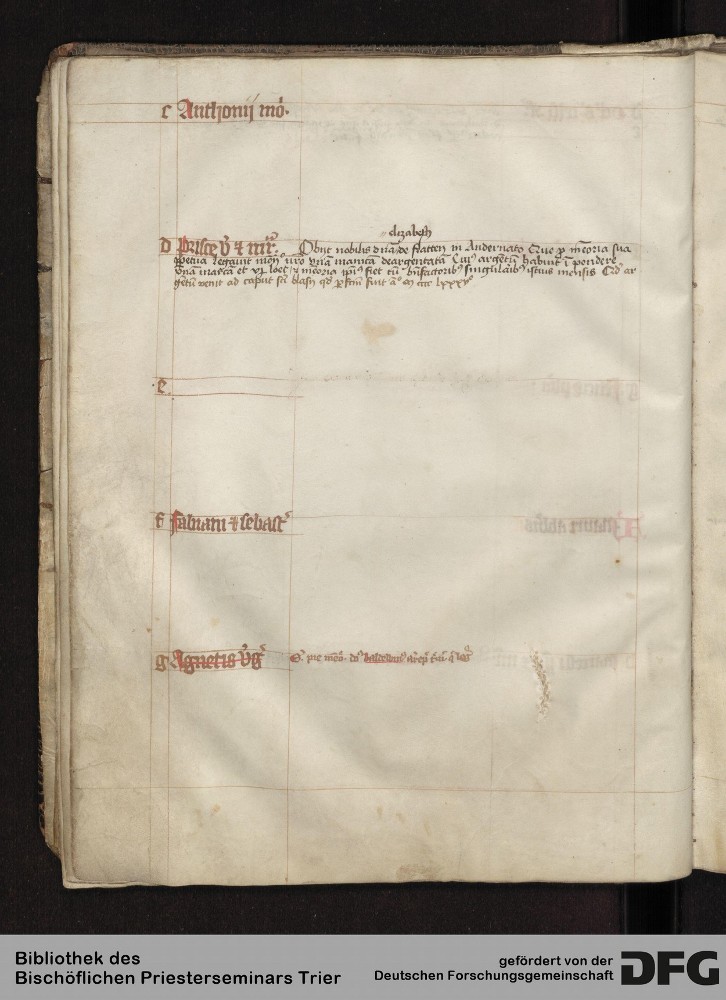 c Anthonij mo.
elizabeth
d Prisce v̄ & mr̄. Obijt nobilis dn̄a de flatten in Andernaco Que p memoria sua
ppetua legauit mon ūro vnā manicā deargentatā Cuiꝰ argetū habuit ī pondere
vnā marcā et loet & memoria ipiꝰ fiet cū bn̄factoribꝰ singularibꝰ istius mensis Qd ar
getū venit ad caput sti blasij qd fuit ao m cccc lxxx
e
f Fabiani & sebast
g Agnetis v̄g
pie baldewinꝰ
Bibliothek des
Bischöflichen Priesterseminars Trier
gefördert von der
Deutschen Forschungsgemeinschaft DFG